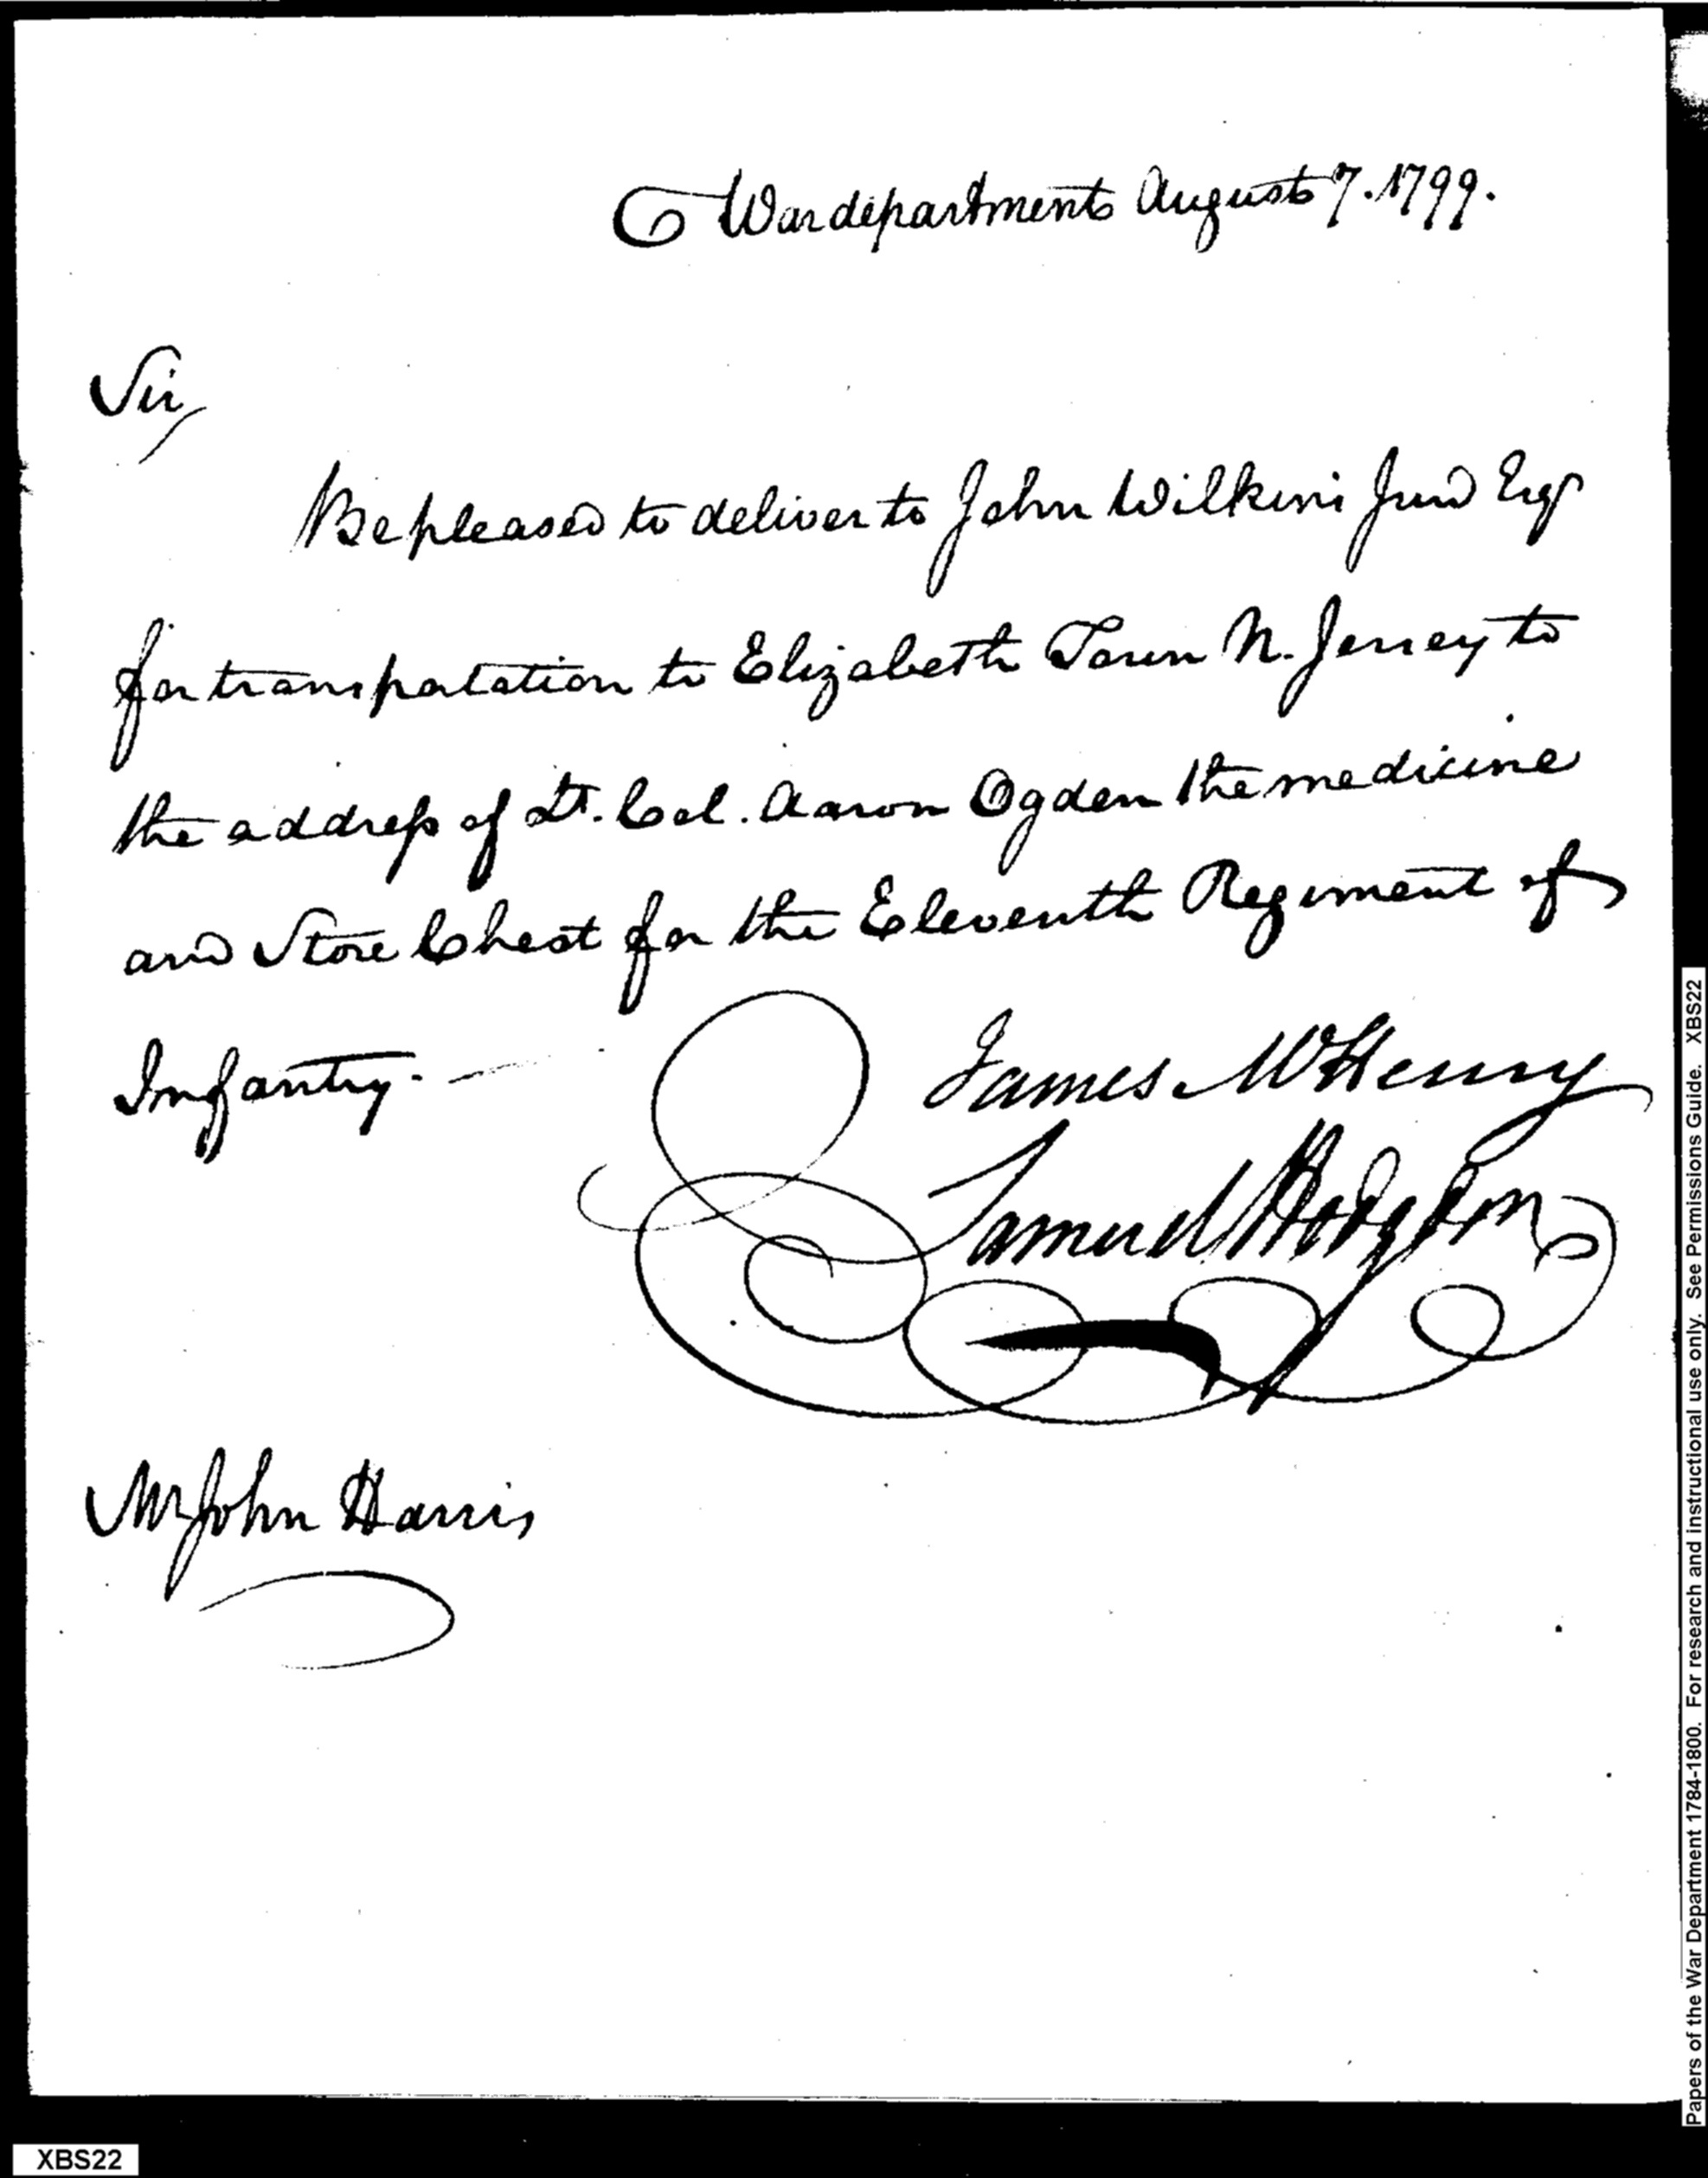 War department August 7. 1799.
Sir,
Be pleased to deliver to John Wilkins Junr Esqr
for transportation to Elizabeth Town N. Jersey to
the address of Lt. Col. Aaron Ogden the medicine
and Store Chest for the Eleventh Regiment of
Infantry. —
James McHenry
Samuel Hodgdon
Mr John Harris
Papers of the War Department 1784-1800. For research and instructional use only. See Permissions Guide. XBS22
XBS22